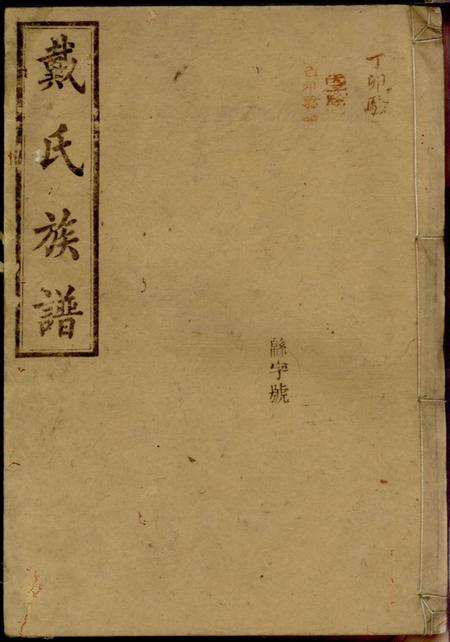 丁卯驗
己卯驗
緜字號
戴氏族譜